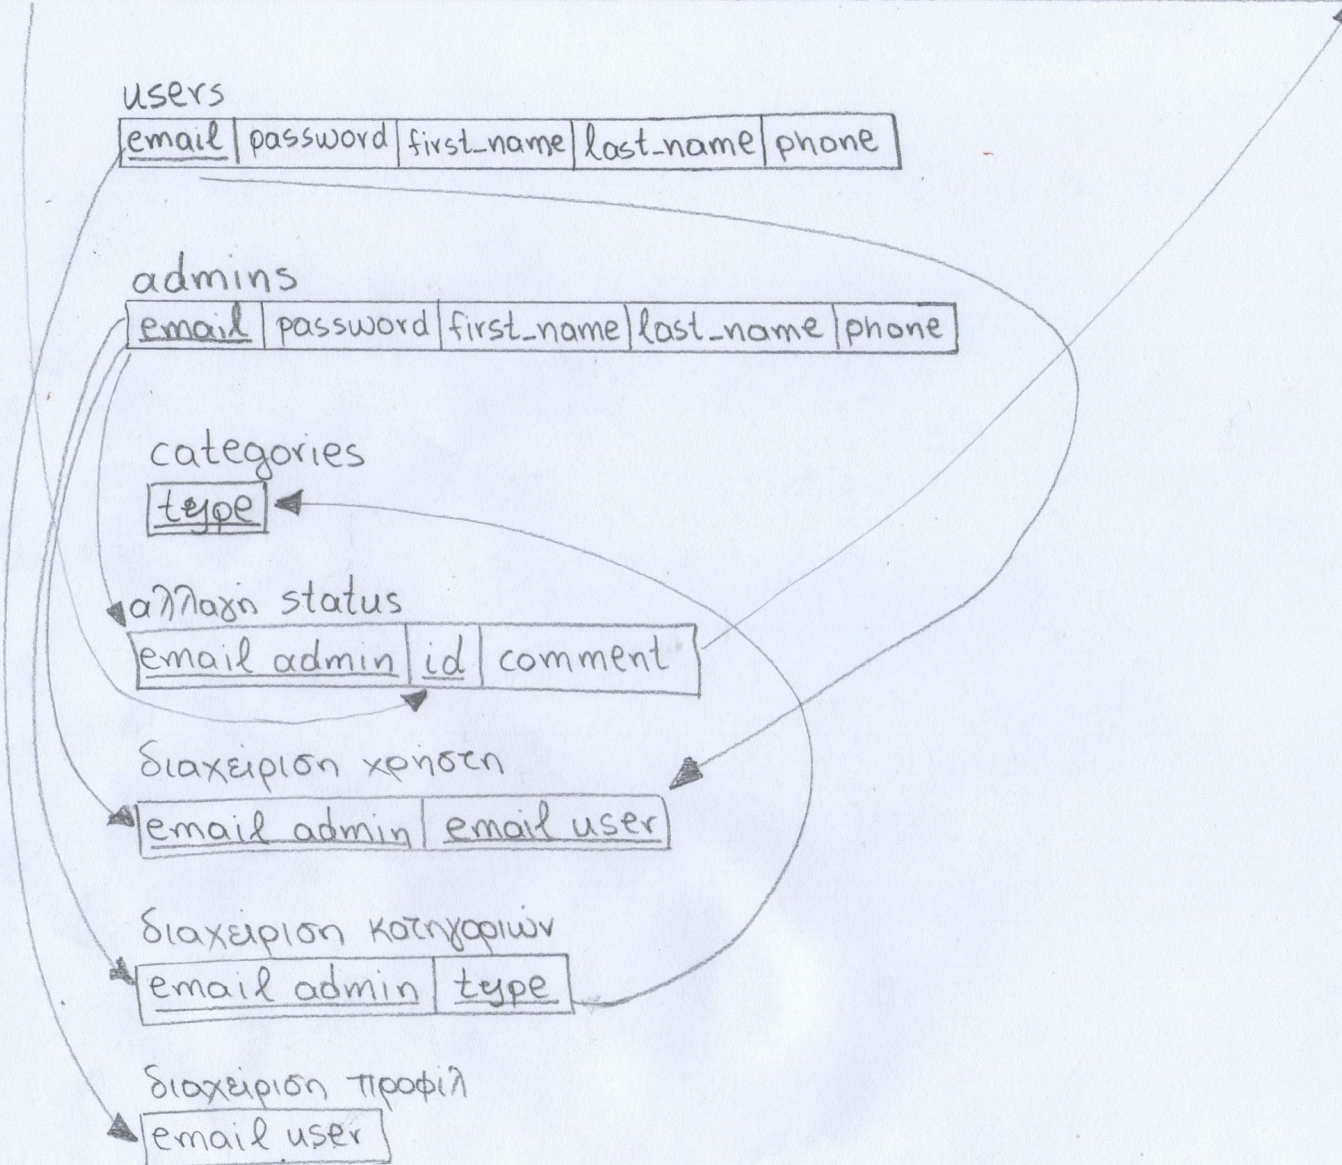 users
email password first_name last_name phone
admins
email password first_name last_name phone
categories
type
αλλαγή status
email admin id comment
διαχείριση χρήστη
email admin email user
διαχείριση κατηγοριών
email admin type
διαχείριση προφίλ
email user